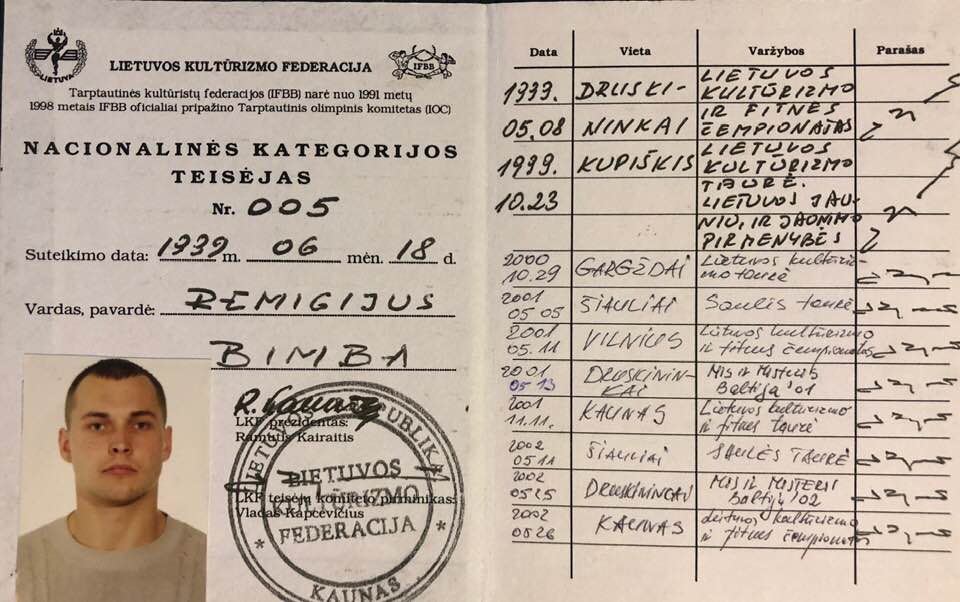 LIETUVA
IFBB
LIETUVOS KULTŪRIZMO FEDERACIJA
Tarptautinės kultūristų federacijos (IFBB) narė nuo 1991 metų
1998 metais IFBB oficialiai pripažino Tarptautinis olimpinis komitetas (IOC)
NACIONALINĖS KATEGORIJOS
TEISĖJAS
Nr. 005
Suteikimo data: 1999 m. 06 mėn. 18 d.
Vardas, pavardė: REMIGIJUS
BIMBA
LKF prezidentas:
Ramutis Kairaitis
LKF teisėjų komiteto pirmininkas:
Vladas Kapcevičius
LIETUVOS RESPUBLIKA
LIETUVOS
KULTŪRIZMO
FEDERACIJA
* KAUNAS *
Data Vieta Varžybos Parašas
1999. DRUSKI- LIETUVOS KULTŪRIZMO
05.08 NINKAI IR FITNES ČEMPIONATAS
1999. KUPIŠKIS LIETUVOS KULTŪRIZMO
10.23 TAURĖ. LIETUVOS JAU-
NIŲ, IR JAUNIMO
PIRMENYBĖS
2000 10.29 GARGŽDAI Lietuvos kultūri-
zmo taurė
2001 05.05 ŠIAULIAI Saulės taurė
2001 05.11 VILNIUS Lietuvos kultūrizmo
ir fitnes čempionatas
2001 05.13 DRUSKININ-
KAI MIS IR MISTERIS
Baltija '01
2001 11.11. KAUNAS Lietuvos kultūrizmo
ir fitnes taurė
2002 05.11 ŠIAULIAI SAULĖS TAURĖ
2002 05.25 DRUSKININGAI MIS IR MISTERIS
Baltija '02
2002 05.26 KAUNAS Lietuvos kultūrizmo
ir fitnes čempionatas